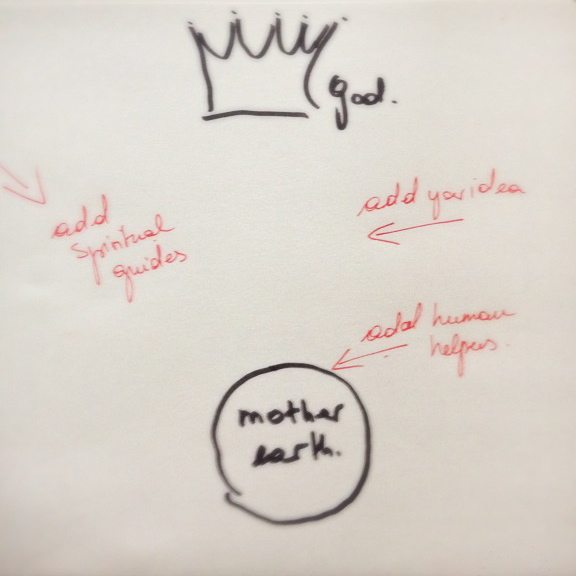 god.
add your idea
add
spiritual
guides
add human
helpers.
mother
earth.